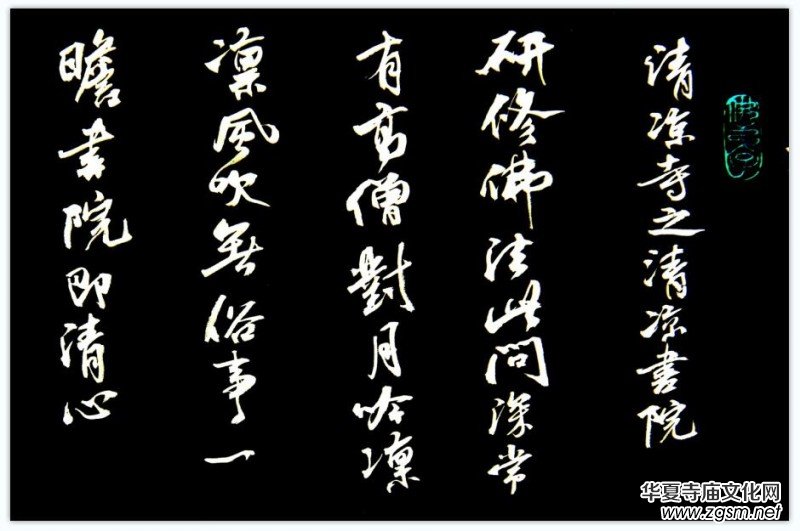 清凉寺之清凉书院
研修佛法此問深常
有高僧對月吟凛
凛風吹無俗事一
瞻書院即清心
华夏寺庙文化网
www.zgsm.net